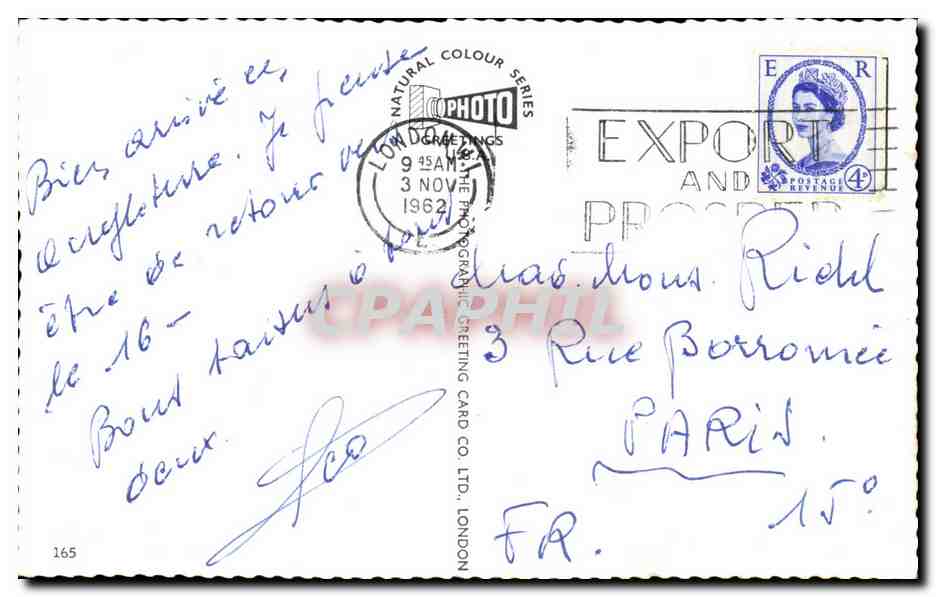 Bien arrivée en
Angleterre. Je pense
être de retour vers
le 16 -
Bons baisers à tous
deux.
165
NATURAL COLOUR SERIES
PHOTO
GREETINGS
THE PHOTOGRAPHIC GREETING CARD CO. LTD., LONDON
LONDON
9 45 AM
3 NOV
1962
E
EXPORT
AND
PROSPER
E R
POSTAGE
REVENUE
4D
CPAPHIL
Mad. Mons. Ridel
3 Rue Borromée
PARIS.
15°
FR.